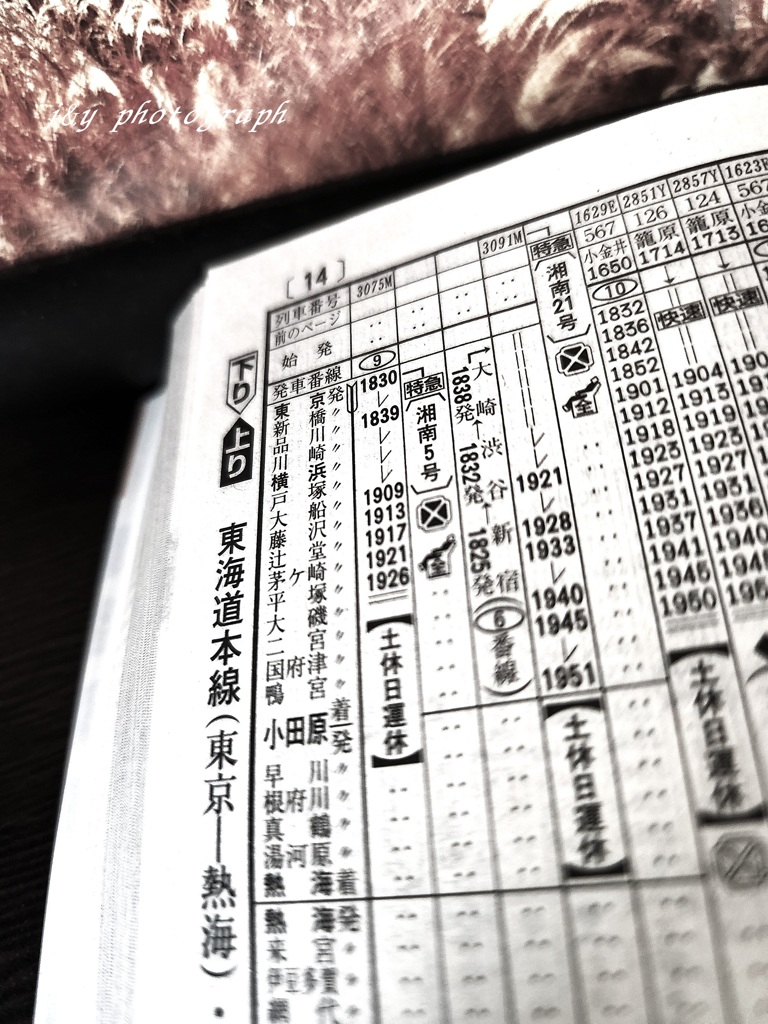 j&y photograph
[14]
列車番号 3075M 3091M 1629E 2851Y 2857Y 1623E
前のページ 567 126 124 567
始発 小金井 籠原 籠原 小金
1650 1714 1713
発車番線 ⑨ ⑩
特急 湘南5号 全
特急 湘南21号 全
快速 快速
大崎 1838発 ← 渋谷 1832発 ← 新宿 1825発 ⑥番線
東京発 1830 1832
新橋〃 1836
品川〃 1839 1842
川崎〃 1852
横浜〃 1901 1904
戸塚〃 1912 1913
大船〃 1909 1921 1918 1919
藤沢〃 1913 1923 1923
辻堂〃 1917 1928 1927 1927
茅ケ崎〃 1921 1933 1931 1931
平塚〃 1926 1937 1936
大磯〃 1940 1941 1940
二宮〃 1945 1945
国府津〃 1950
鴨宮〃
小田原着発 1951
早川〃
根府川〃
真鶴〃
湯河原〃
熱海着
熱海発
来宮
伊豆多賀
網代
土休日運休
土休日運休
土休日運休
下り
上り
東海道本線(東京―熱海)・